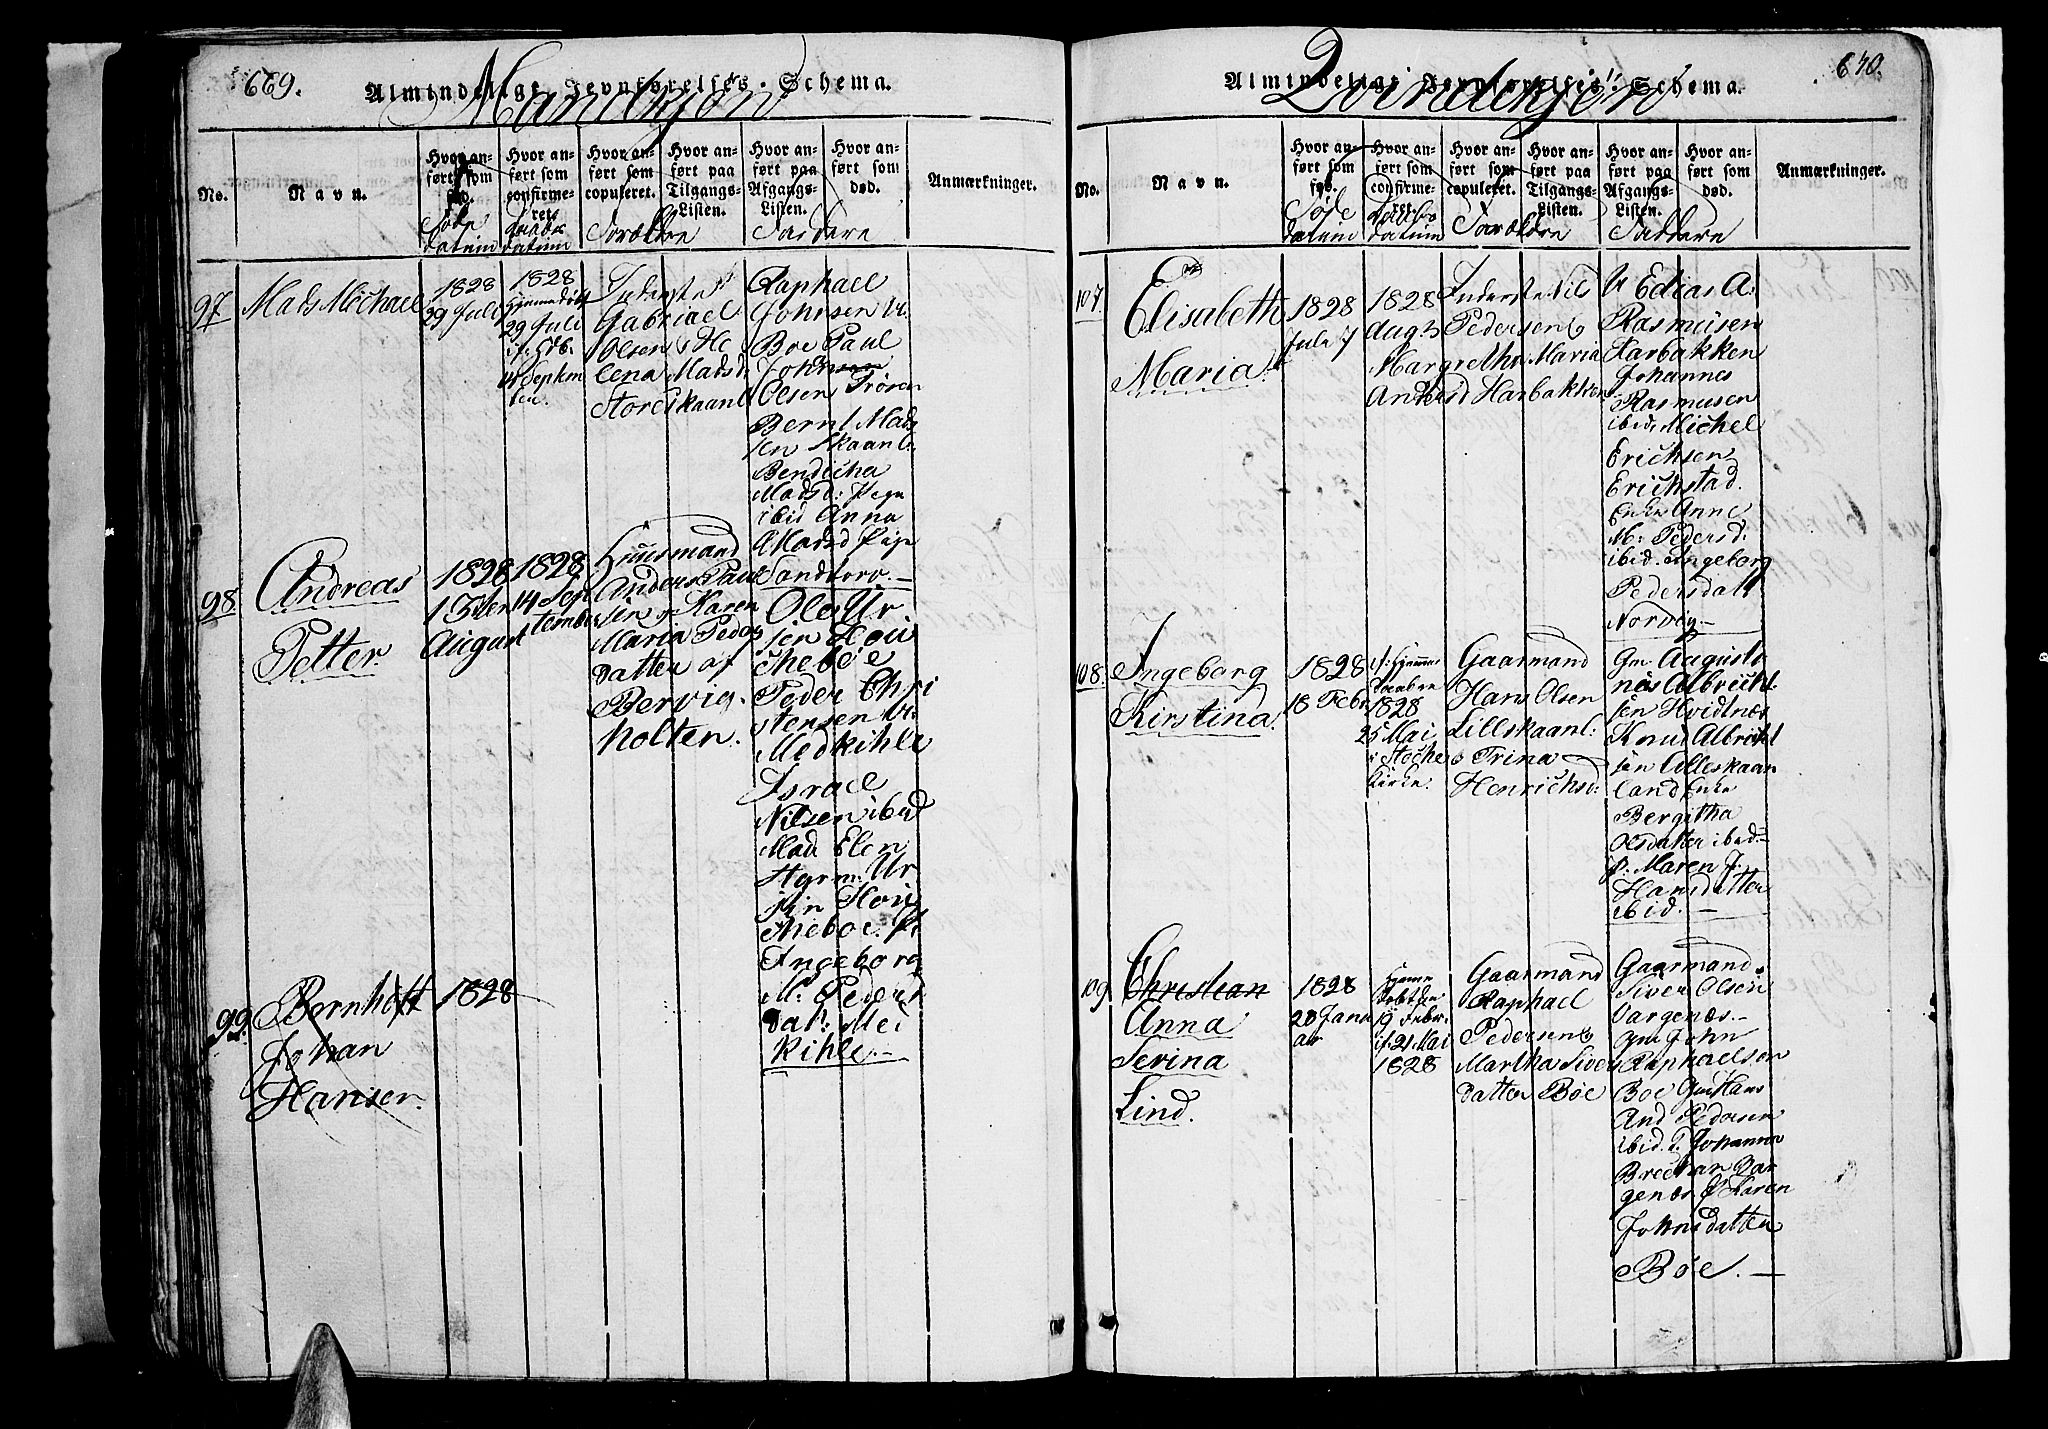 669.
Almindelige Jevnførelses-Schema.
Mandkjøn
No.
Navn.
Hvor anført som fød.
Hvor anført som confirmeret.
Hvor anført som copuleret.
Hvor anført paa Tilgangs-Listen.
Hvor anført paa Afgangs-Listen.
Hvor anført som død.
Anmærkninger.
Føde datum
Daabs datum
Forældre
Faddere
97
Mads Michael
1828
29 Juli
1828
29 Juli
14 Septem
ber
Inderste
Gabriel
Olsen & He
lena Madsd.
Storeskaanl
Raphael
Johnsen
Boe Paul
Johnsen
Olsen Trøsen
Bernt Mads
sen Skaanl.
Bendicha
Madsd: Pige
ibid Anna
Madsd Pige
Sandtorv.—
98.
Andreas
Petter.
1828
13den
August
1828
14 Sep
tember
Huusmand
Anders Paul
sen & Karen
Maria Peders
datter af
Bervig-
holten.
Ole Ur
sin Hou
kebøe
Peder Chri
stensen
Medkihle
Israel
Nilsen ibid
Mad Elen
Herm: Ur
sin Hou
keboe. P.
Ingeborg
M: Peders
dat: Med
kihle.—
99.
Bernhoft
Johan
Hansen.
1828
640.
Almindelige Jevnførelses-Schema.
Qvindekjøn
No.
Navn.
Hvor anført som fød.
Hvor anført som confirmeret.
Hvor anført som copuleret.
Hvor anført paa Tilgangs-Listen.
Hvor anført paa Afgangs-Listen.
Hvor anført som død.
Anmærkninger.
Føde datum
Daabs datum
Forældre
Faddere
107
Elisabeth
Maria.
1828
Jule 7
1828
Aug: 3
Inderste Nils
Pedersen &
Margrethe Maria
Andersd Harbakken
Edias A.
Rasmusen
Harbakken
Johannes
Rasmusen
ibid. Michel
Erichsen
Erichstad.
Enke Anne
M: Pedersd:
ibid. Ingeborg
Pedersdatt
Norvig.—
108.
Ingeborg
Kirstina.
1828
18 Febr.
1828
25 Mai
Kirke.
Gaarmand
Hans Olsen
Lillskaanl:
& Trina
Henrichsd:
Gm. Augusti
nus Albricht
sen Hvidtnæs
Knud Albricht
sen Lilleskaan
land Enke
Bergitha
Olsdatter ibid
P. Maren J:
Hansdatter
ibid.—
109
Christian
Anna
Serina
Lind.
1828
20 Janu
ar
Hjemme
døbt den
19 Febr.
21 Mai
1828
Gaarmand
Raphael
Pedersen &
Martha Sivers
datter Bøe
Gaarmand
Siver Olsen
Vargenæs.—
Gm John
Raphaelsen
Boe Gm Hans
And Pedersen
ibid. P. Johanna
Brechan Var
genæs P Karen
Johnsdatter
Bøe.—